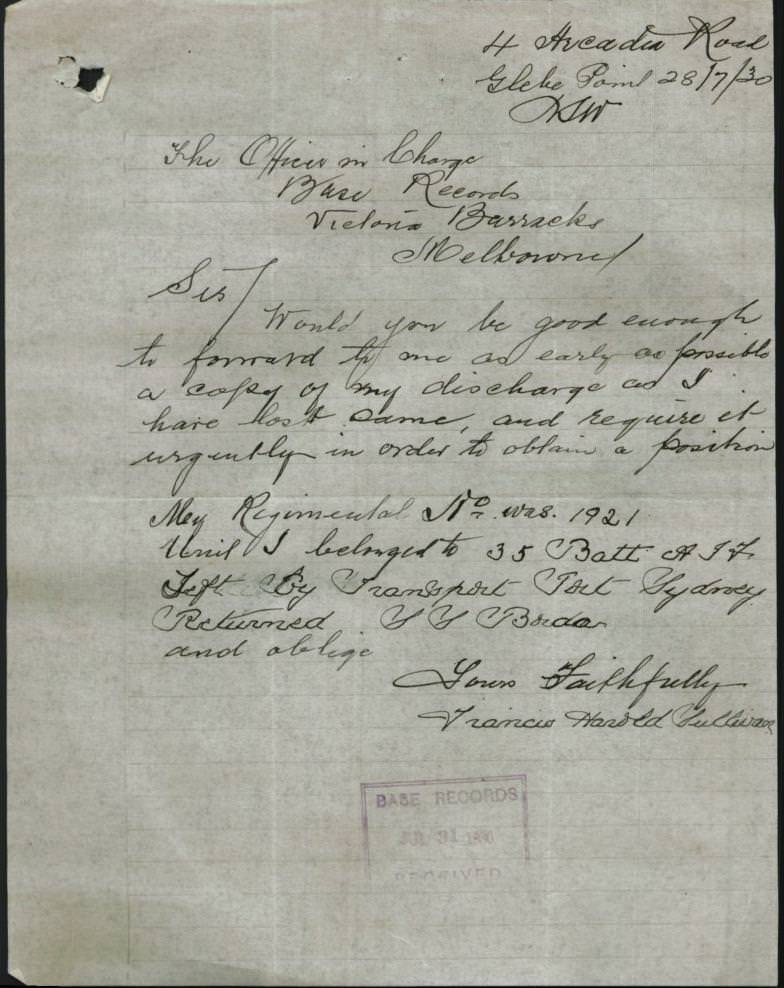 4 Arcadia Road
Glebe Point 28/7/30
NSW
The Officer in Charge
Base Records
Victoria Barracks
Melbourne
Sir/
Would you be good enough
to forward to me as early as possible
a copy of my discharge as I
have lost same, and require it
urgently in order to obtain a position
My Regimental No. was. 1921
Unit I belonged to 35 Batt A I F.
Left By Transport Port Sydney
Returned S S Borda
and oblige
Yours Faithfully
Francis Harold Sullivan
BASE RECORDS
JUL 31 1930
RECEIVED